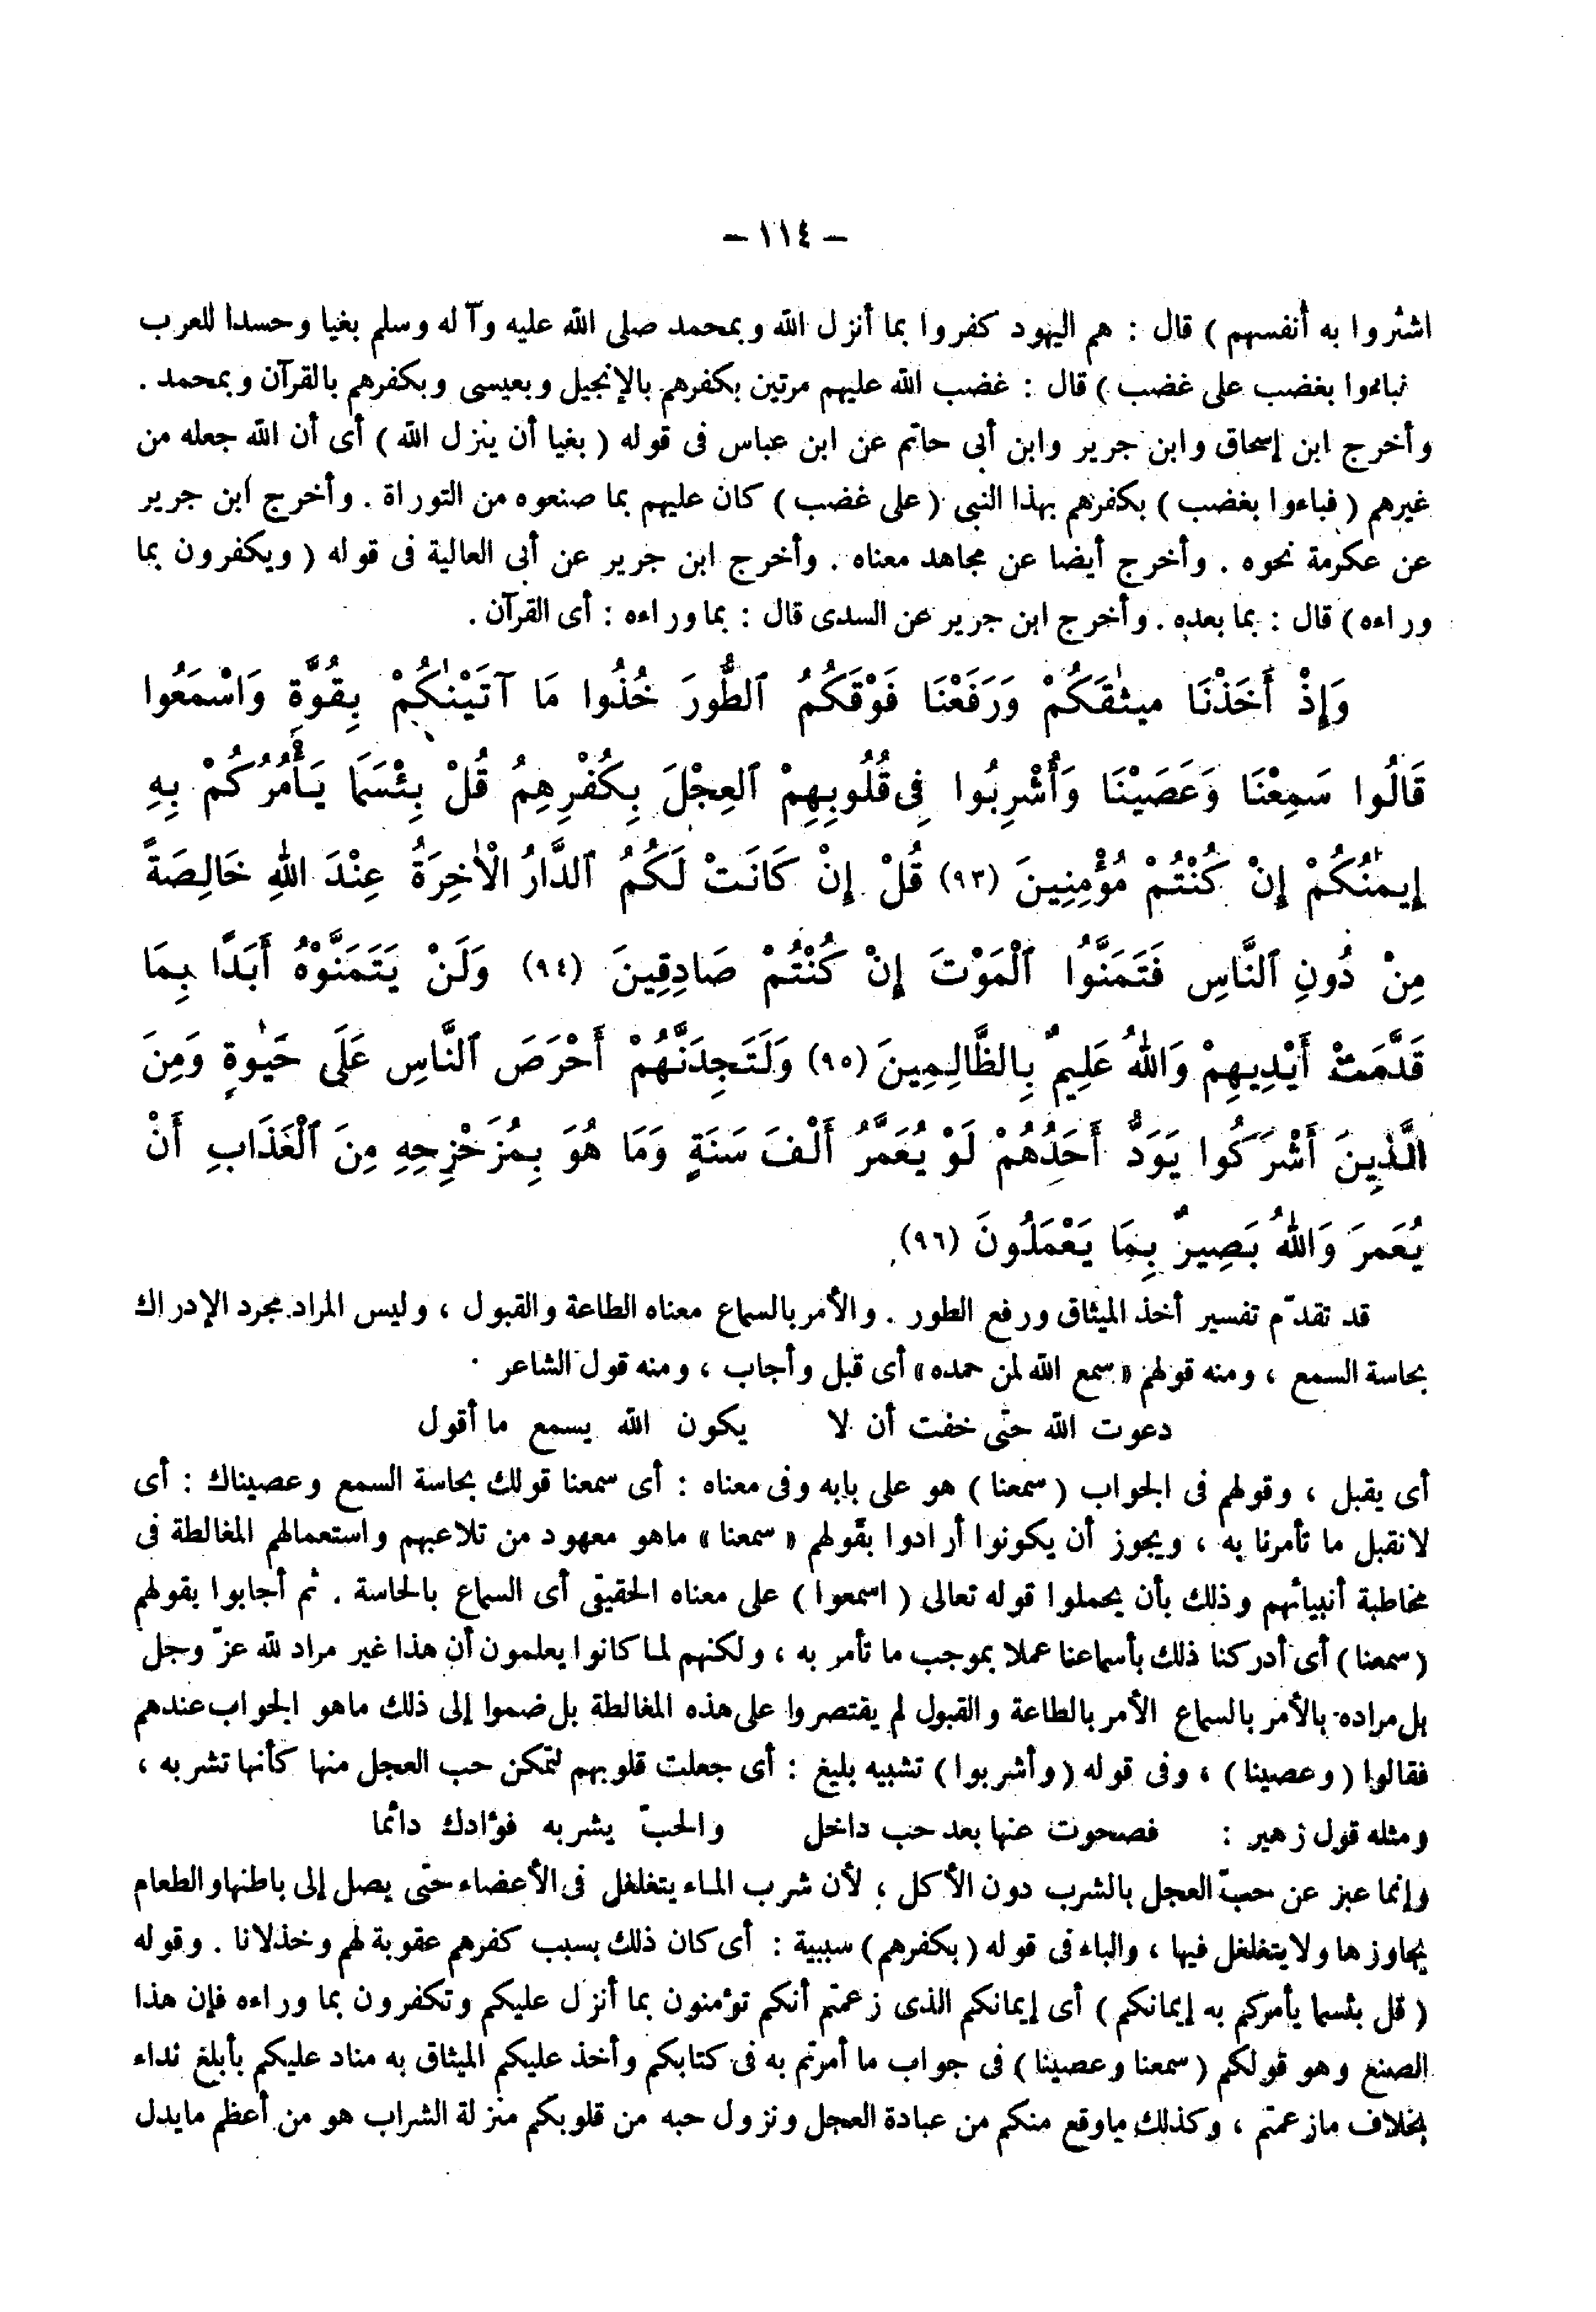 – ١١٤ –
اشتروا به أنفسهم ) قال : هم اليهود كفروا بما أنزل الله وبمحمد صلى الله عليه وآله وسلم بغيا وحسدا للعرب
فباءوا بغضب على غضب ) قال : غضب الله عليهم مرتين بكفرهم بالإنجيل وبعيسى وبكفرهم بالقرآن وبمحمد .
وأخرج ابن إسحاق وابن جرير وابن أبى حاتم عن ابن عباس فى قوله ( بغيا أن ينزل الله ) أى أن الله جعله من
غيرهم ( فباءوا بغضب ) بكفرهم بهذا النبى ( على غضب ) كان عليهم بما صنعوه من التوراة . وأخرج ابن جرير
عن عكرمة نحوه . وأخرج أيضا عن مجاهد معناه . وأخرج ابن جرير عن أبى العالية فى قوله ( ويكفرون بما
وراءه ) قال : بما بعده . وأخرج ابن جرير عن السدى قال : بما وراءه : أى القرآن .
وَإِذْ أَخَذْنَا مِيثٰقَكُمْ وَرَفَعْنَا فَوْقَكُمُ ٱلطُّورَ خُذُوا مَا آتَيْنٰكُمْ بِقُوَّةٍ وَاسْمَعُوا
قَالُوا سَمِعْنَا وَعَصَيْنَا وَأُشْرِبُوا فِى قُلُوبِهِمْ ٱلعِجْلَ بِكُفْرِهِمْ قُلْ بِئْسَمَا يَأْمُرُكُمْ بِهِ
إِيمٰنُكُمْ إِنْ كُنْتُمْ مُؤْمِنِينَ (٩٣) قُلْ إِنْ كَانَتْ لَكُمُ ٱلدَّارُ الْأٰخِرَةُ عِنْدَ اللهِ خَالِصَةً
مِنْ دُونِ ٱلنَّاسِ فَتَمَنَّوُا ٱلْمَوْتَ إِنْ كُنْتُمْ صَادِقِينَ (٩٤) وَلَنْ يَتَمَنَّوْهُ أَبَدًا بِمَا
قَدَّمَتْ أَيْدِيهِمْ وَاللهُ عَلِيمٌ بِالظَّالِمِينَ (٩٥) وَلَتَجِدَنَّهُمْ أَحْرَصَ ٱلنَّاسِ عَلَى حَيٰوةٍ وَمِنَ
الَّذِينَ أَشْرَكُوا يَوَدُّ أَحَدُهُمْ لَوْ يُعَمَّرُ أَلْفَ سَنَةٍ وَمَا هُوَ بِمُزَحْزِحِهِ مِنَ ٱلْعَذَابِ أَنْ
يُعَمرَ وَاللهُ بَصِيرٌ بِمَا يَعْمَلُونَ (٩٦)
قد تقدّم تفسير أخذ الميثاق ورفع الطور . والأمر بالسماع معناه الطاعة والقبول ، وليس المراد مجرد الإدراك
بحاسة السمع ، ومنه قولهم « سمع الله لمن حمده » أى قبل وأجاب ، ومنه قول الشاعر .
دعوت الله حتى خفت أن لا يكون الله يسمع ما أقول
أى يقبل ، وقولهم فى الجواب ( سمعنا ) هو على بابه وفى معناه : أى سمعنا قولك بحاسة السمع وعصيناك : أى
لا نقبل ما تأمرنا به ، ويجوز أن يكونوا أرادوا بقولهم « سمعنا » ماهو معهود من تلاعبهم واستعمالهم المغالطة فى
مخاطبة أنبيائهم وذلك بأن يحملوا قوله تعالى ( اسمعوا ) على معناه الحقيقى أى السماع بالحاسة . ثم أجابوا بقولهم
( سمعنا ) أى أدركنا ذلك بأسماعنا عملا بموجب ما تأمر به ، ولكنهم لما كانوا يعلمون أن هذا غير مراد لله عزّ وجل
بل مراده بالأمر بالسماع الأمر بالطاعة والقبول لم يقتصروا على هذه المغالطة بل ضموا إلى ذلك ماهو الجواب عندهم
فقالوا ( وعصينا ) ، وفى قوله ( وأشربوا ) تشبيه بليغ : أى جعلت قلوبهم لتمكن حب العجل منها كأنها تشربه ،
ومثله قول زهير : فصحوت عنها بعد حب داخل والحبّ يشربه فؤادك دائما
وإنما عبر عن حبّ العجل بالشرب دون الأكل ؛ لأن شرب الماء يتغلغل فى الأعضاء حتى يصل إلى باطنها والطعام
يجاوزها ولا يتغلغل فيها ، والباء فى قوله ( بكفرهم ) سببية : أى كان ذلك بسبب كفرهم عقوبة لهم وخذلانا . وقوله
( قل بئسما يأمركم به إيمانكم ) أى إيمانكم الذى زعمتم أنكم تؤمنون بما أنزل عليكم وتكفرون بما وراءه فإن هذا
الصنع وهو قولكم ( سمعنا وعصينا ) فى جواب ما أمرتم به فى كتابكم وأخذ عليكم الميثاق به مناد عليكم بأبلغ نداء
بخلاف مازعمتم ، وكذلك ماوقع منكم من عبادة العجل ونزول حبه من قلوبكم منزلة الشراب هو من أعظم مايدل